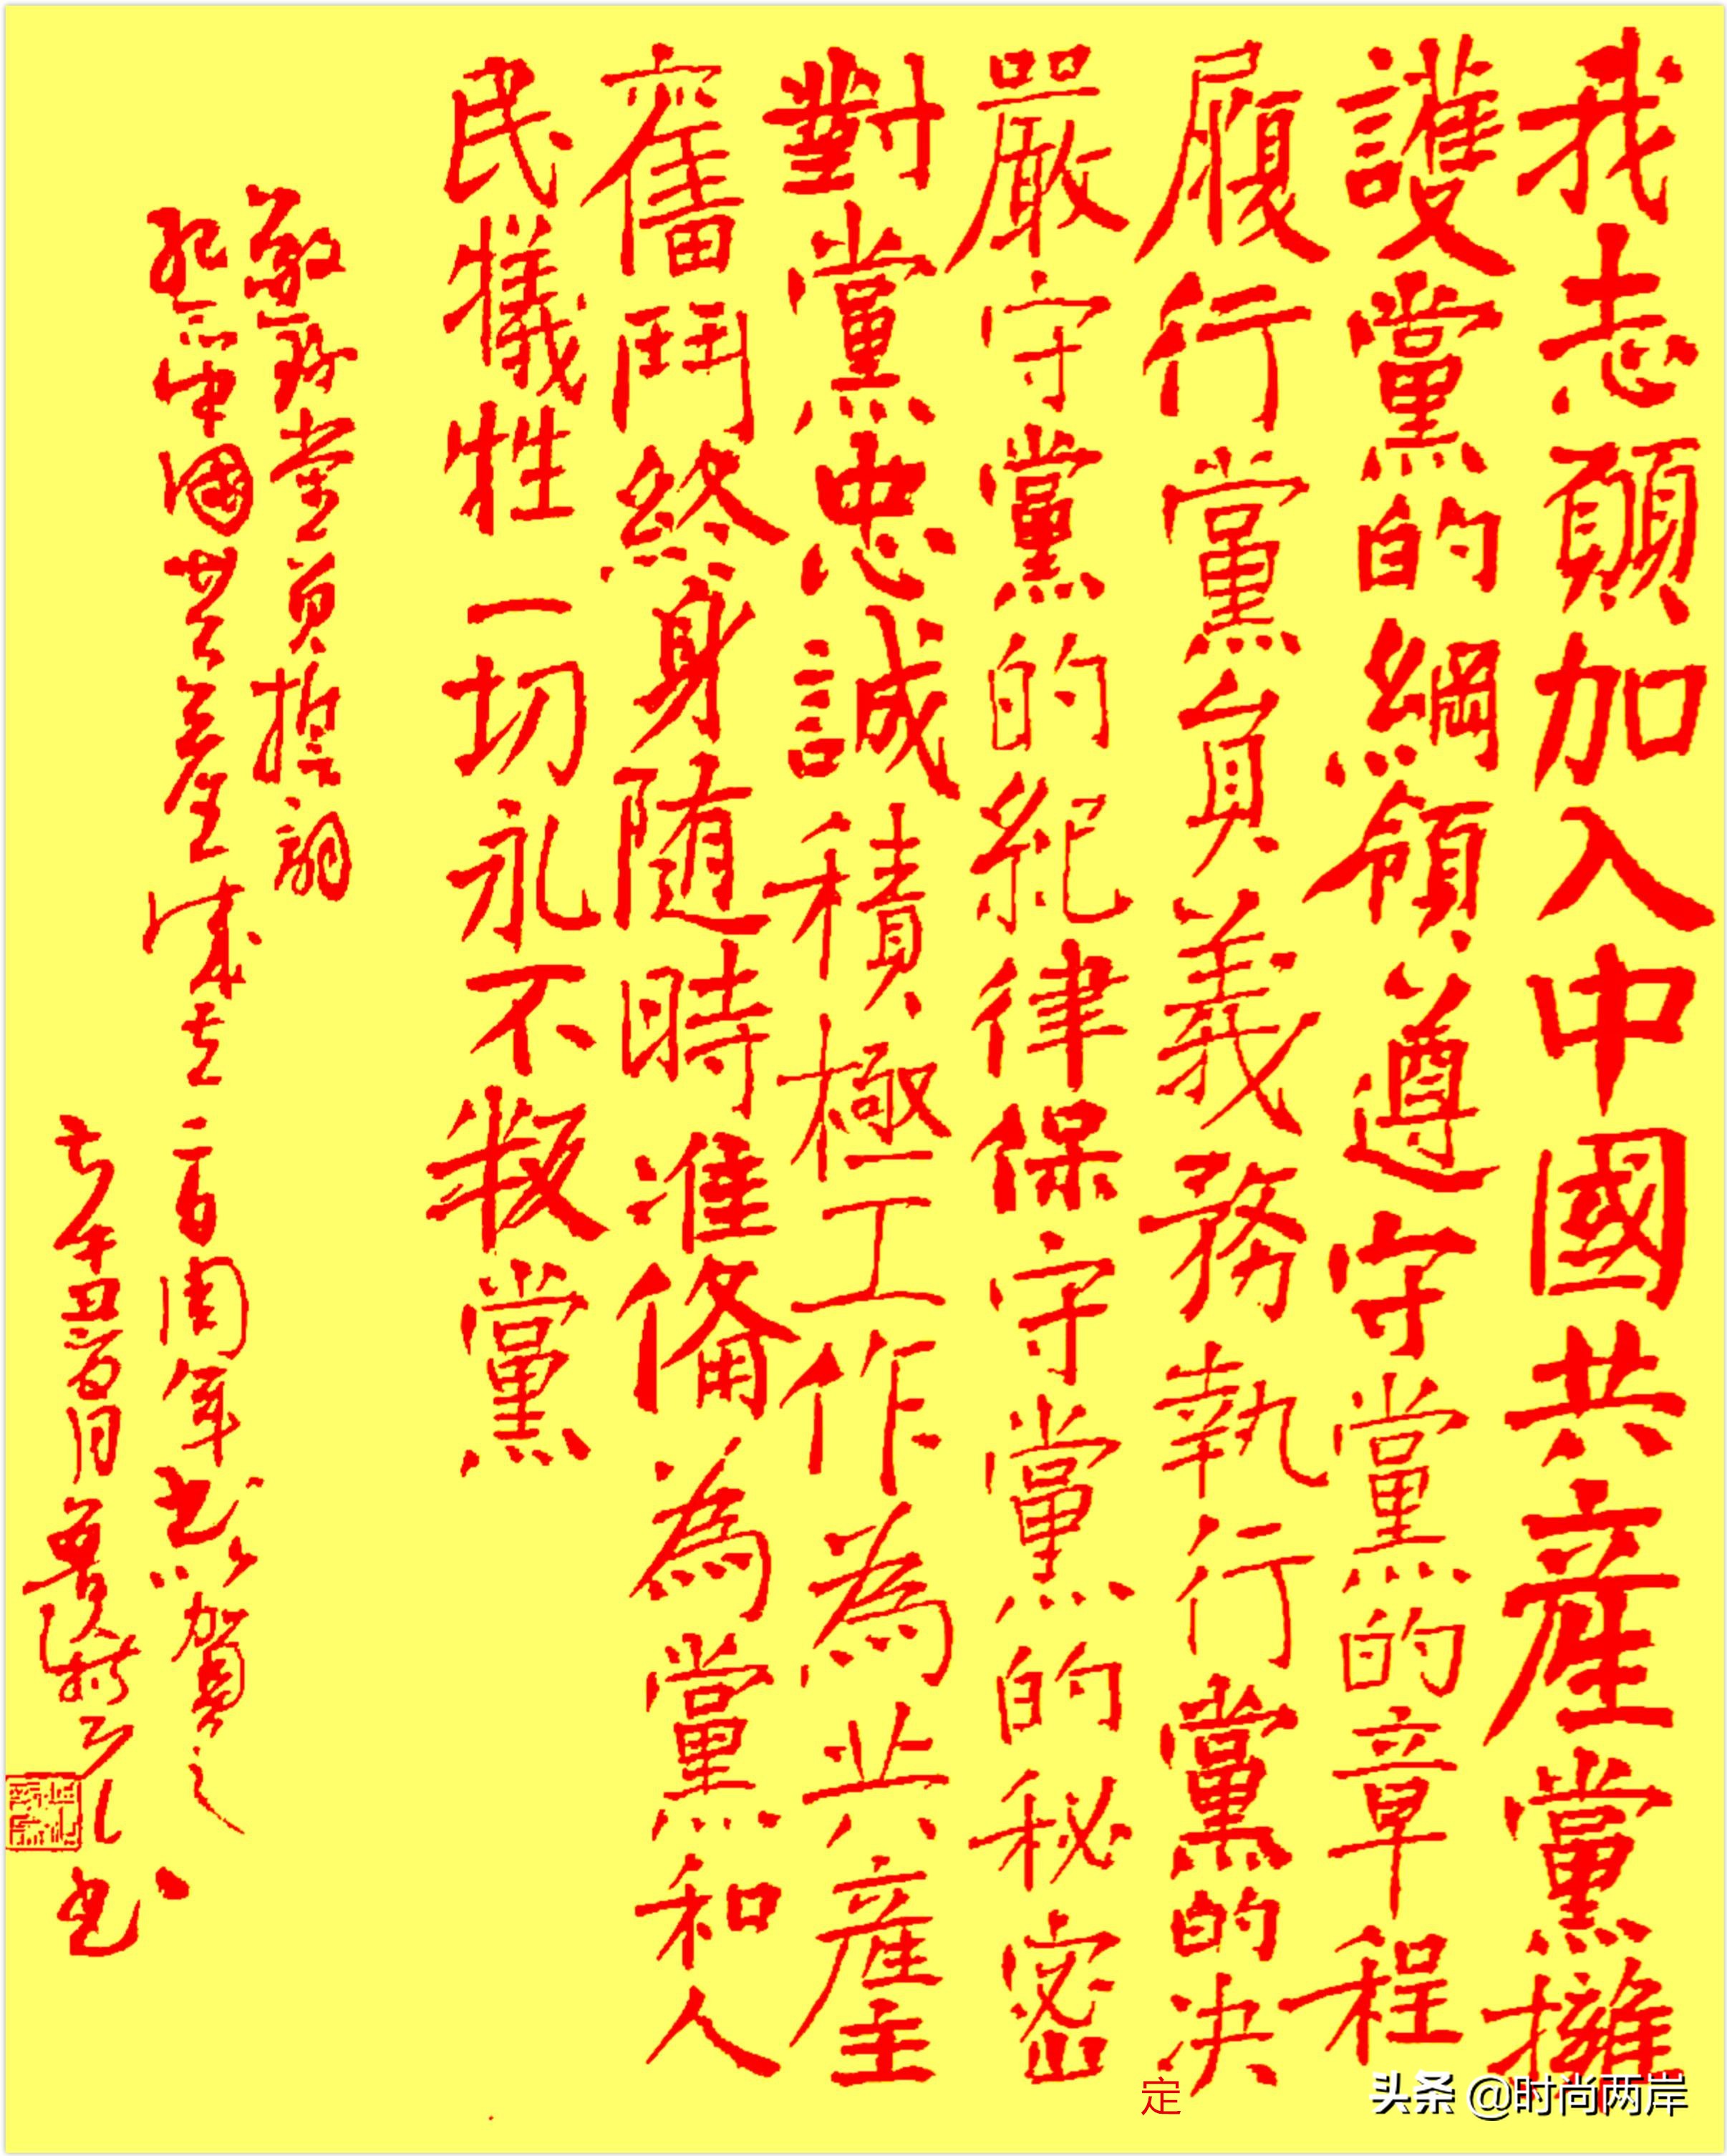 我志願加入中國共產黨擁
護黨的綱領遵守黨的章程
履行黨員義務執行黨的决定
嚴守黨的紀律保守黨的秘密
對黨忠誠積極工作為共產主
奮鬥終身随時准備為黨和人
民犧牲一切永不叛黨
敬錄黨員誓詞
紀念中國共產成立一百周年書以賀之
辛丑月书
头条 @时尚两岸